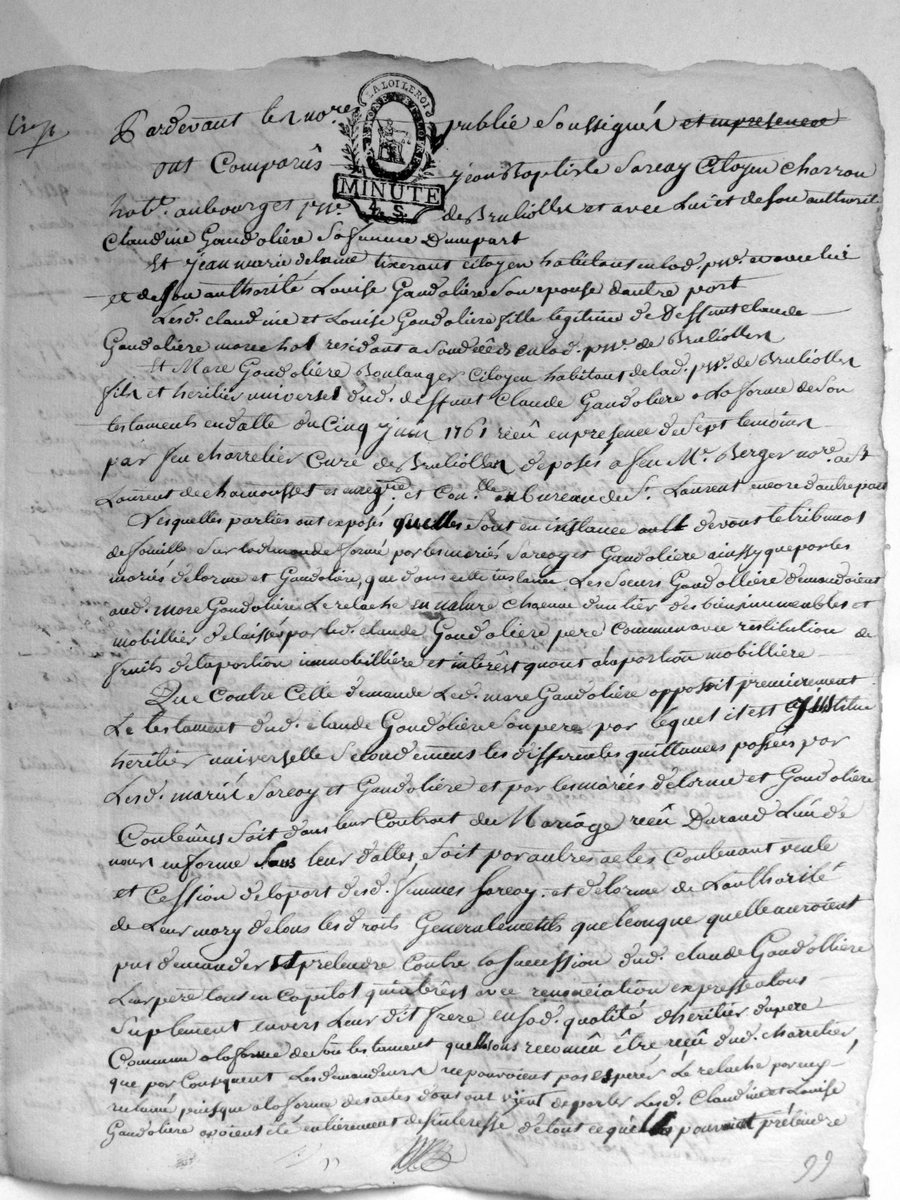 Pardevant les no.re publie soussignés et en presence
LA LOI LE ROI
ont Comparûs jean Baptiste Sarcay Citoyen charron
MINUTE
4. S.
hab.t aubourg et p.sse de Brullioles et avec Lui et de son authorité
Claudine Gandoliére Sa femme Dune part
Et jean marie delorme tixerant citoyen habitant en lad. p.sse avec lui
et de son authorité Louise Gandoliére Son epouse dautre part
Lesd. claudine et Louise Gandoliére fille legitime de Deffunt claude
Gandoliére mort residant a en lad. p.sse de Brullioles
Et Marc Gandoliére Boulanger Citoyen habitant de lad. p.sse de Brullioles
fils et heritier universel dud. deffunt Claude Gandoliére a La forme de Son
testament en datte du Cinq juin 1761 reçû en presence de Sept temoins
par feu charretier Curé de Brullioles deposés a feu M.r Berger no.re a S.t
Laurent de chamousset et Con.lle au bureau de S.t Laurent encore dautre part
Lesquelles parties ont exposés quelles Sont en instance devant le tribunal
de Sur la demande formé par les mariés Sarcay et Gandoliére ainssy que par les
mariés delorme et Gandoliére, que dans cette instance Les Soeurs Gandolliére demandoient
aud. marc Gandoliére Le relache en nature chacune dun tier des biens immeubles et
mobillier delaissés par led. claude Gandoliére pere Commun avec restitution de
fruits de la portion immobilliére et interêt quant a la portion mobilliére
Que Contre Cette demande Led. marc Gandoliére opposoit premiérement
Le testament dud. claude Gandoliére Son pere par lequel il est institué
heritier universelle Secondement les differentes quittances passées par
Lesd. mariés Sarcay et Gandoliére et par les mariés delorme et Gandoliére
Contenües Soit dans leur Contrat de Mariage reçû Durand Lun de
nous en forme Sous leur dattes, Soit par autres actes Contenant vente
et Cession de la part desd. femmes Sarcay et delorme de Lauthorité
de Leur mary de tous les droits Generalements quelconque quelle auroient
pus demander et prétendre Contre la Succession dud. claude Gandolliére
Leur pere tout en Capital quinterêts avec renonciation expresse a tous
Suplement envers Leur dit frere en sad. qualité dheritier du pere
Commun a la forme de Son testament reconnû être reçû dud. charretier,
que par Consequent Les demandeurs ne pouvoient pas espérer Le relache par eux
reclamé puisque a la forme des actes dont ont vient de parler Lesd. Claudine et Louise
Gandoliére avoient été entiérement desinteressé de tout ce quelles pouvoient prétendre
99